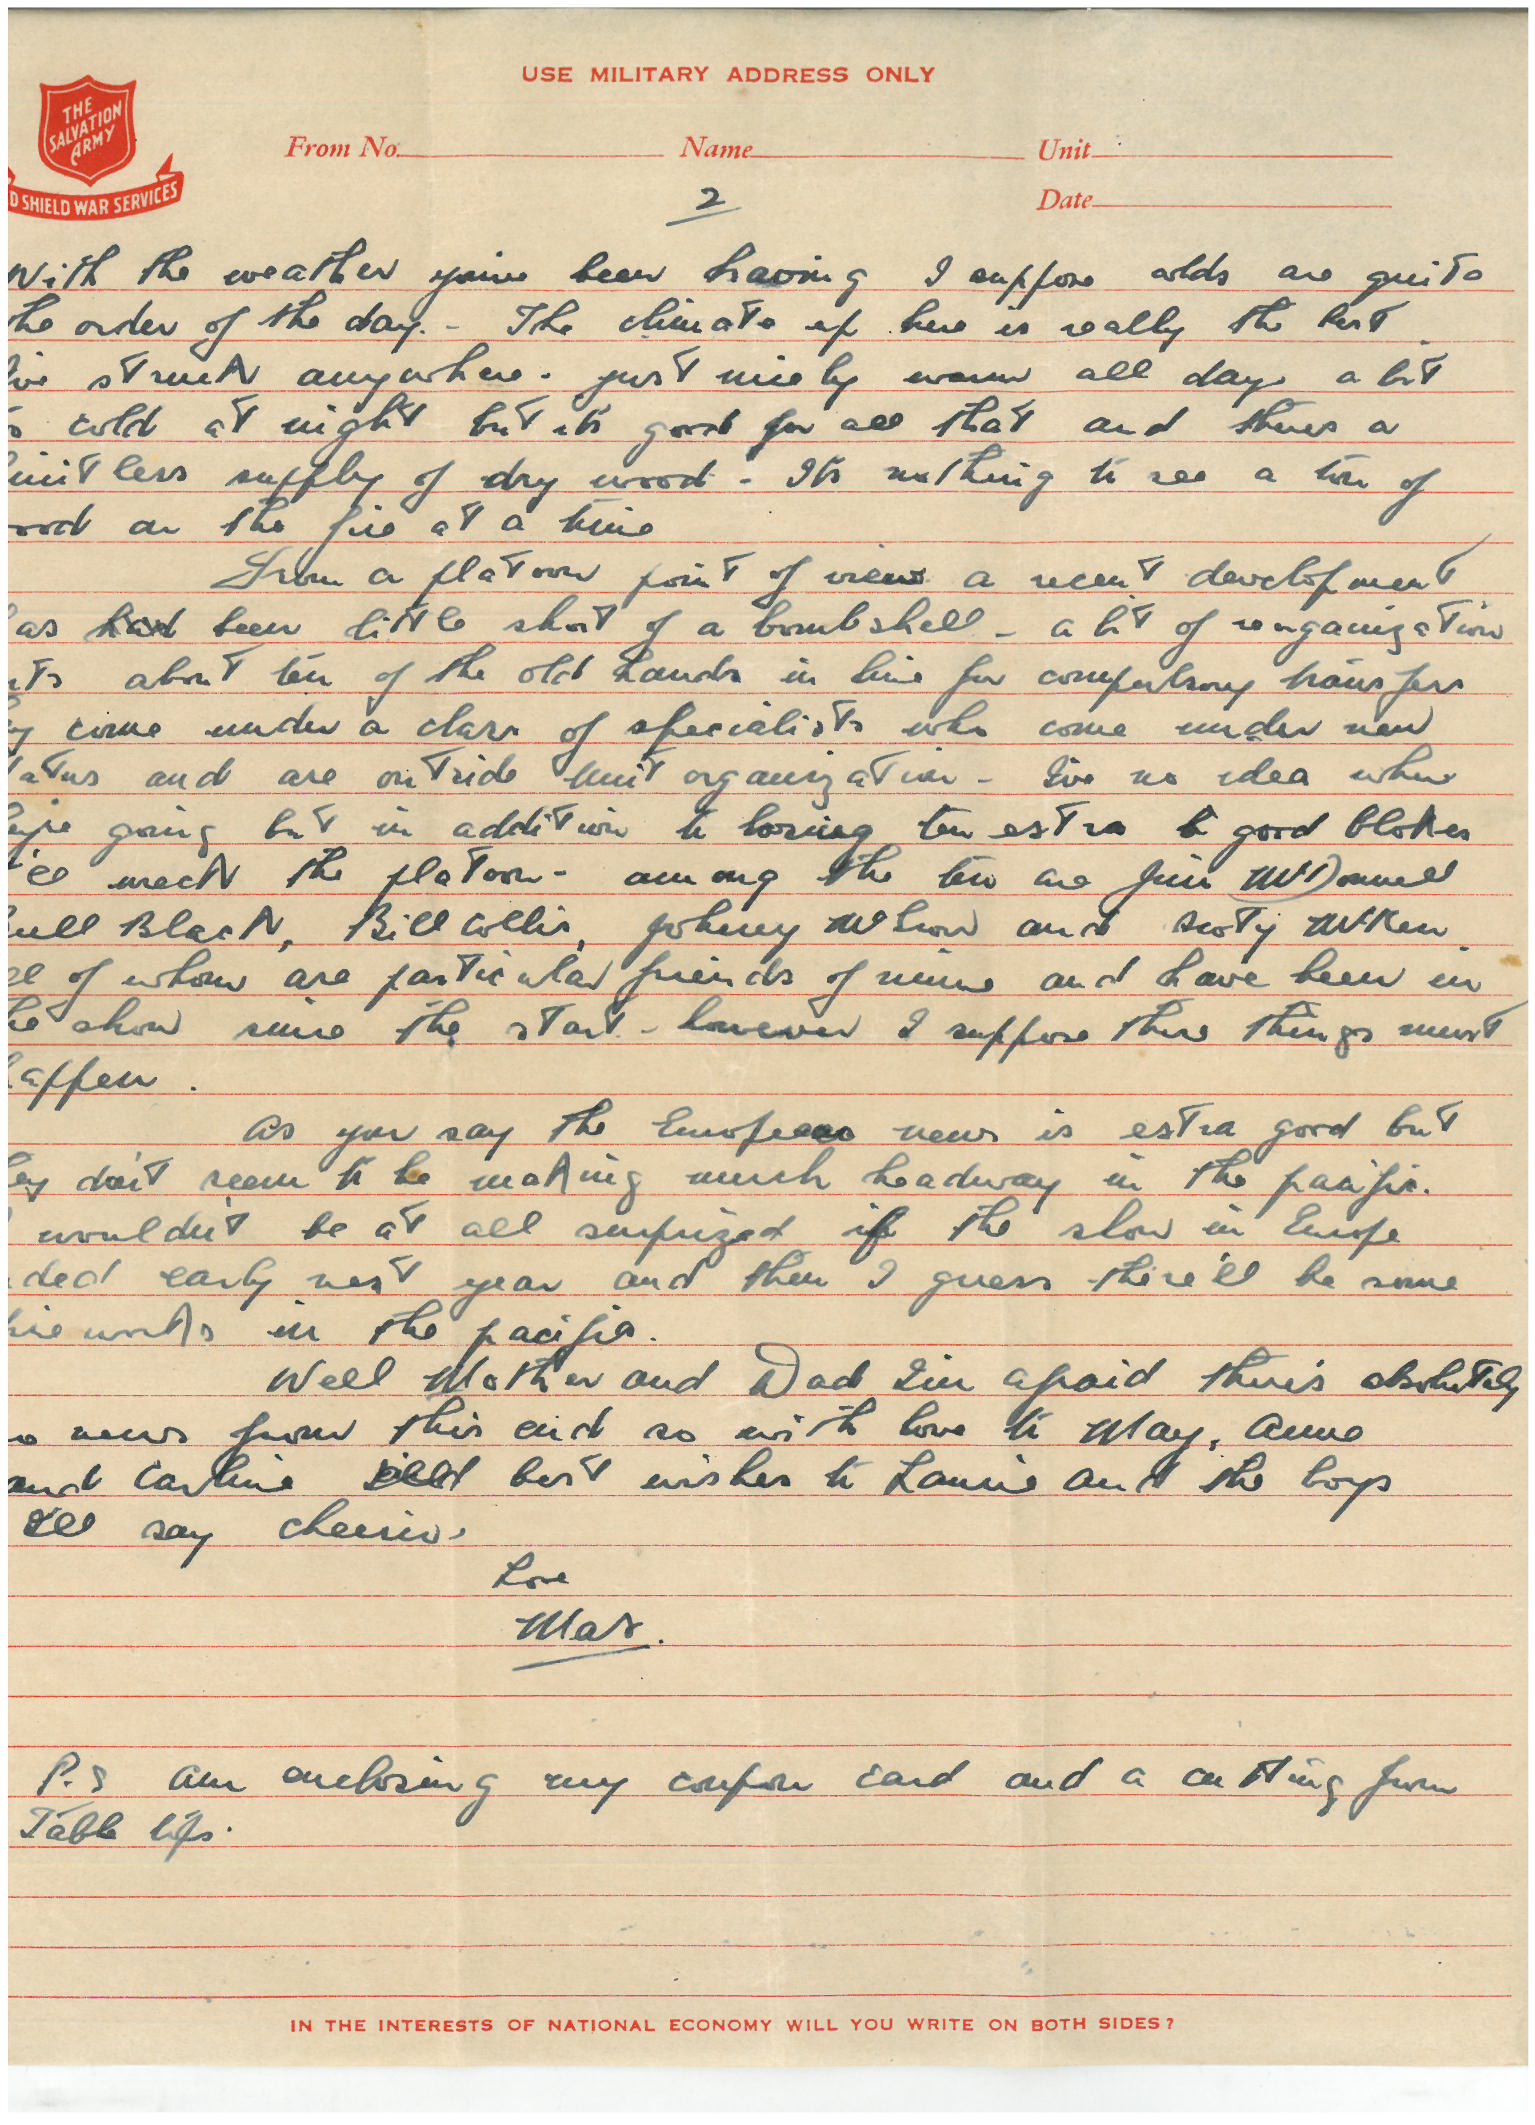 USE MILITARY ADDRESS ONLY
THE
SALVATION
ARMY
D SHIELD WAR SERVICES
From No. Name Unit
2
Date
With the weather you've been having I suppose colds are quite
he order of the day. - The climate up here is really the best
I've struck anywhere - just nicely warm all day a bit
o cold at night but its good for all that and theres a
limitless supply of dry wood - Its nothing to see a ton of
ood on the fire at a time
From a platoon point of view a recent development
as had been little short of a bombshell - a bit of reorganization
uts about ten of the old hands in line for compulsory transfers
ey come under a class of specialists who come under new
tatus and are outside unit organization - Ive no idea where
heyre going but in addition to losing ten extra good blokes
'll wreck the platoon - among the ten are Jim McDonnell
Black, Bill Collis, Johnny and Scoty
ll of whom are particular friends of mine and have been in
he show since the start - however I suppose these things must
happen.
As you say the European news is extra good but
ey don't seem to be making much headway in the pacific.
I wouldn't be at all surprized if the show in Europe
nded early next year and then I guess there'll be some
fireworks in the pacific.
Well Mother and Dad I'm afraid there's absolutely
o news from this end so with love to May, Anne
and Carline best wishes to Laurie and the boys
I'll say cheerio.
Love
Max.
P.S am enclosing my coupon card and a cutting from
Table Tops.
IN THE INTERESTS OF NATIONAL ECONOMY WILL YOU WRITE ON BOTH SIDES?